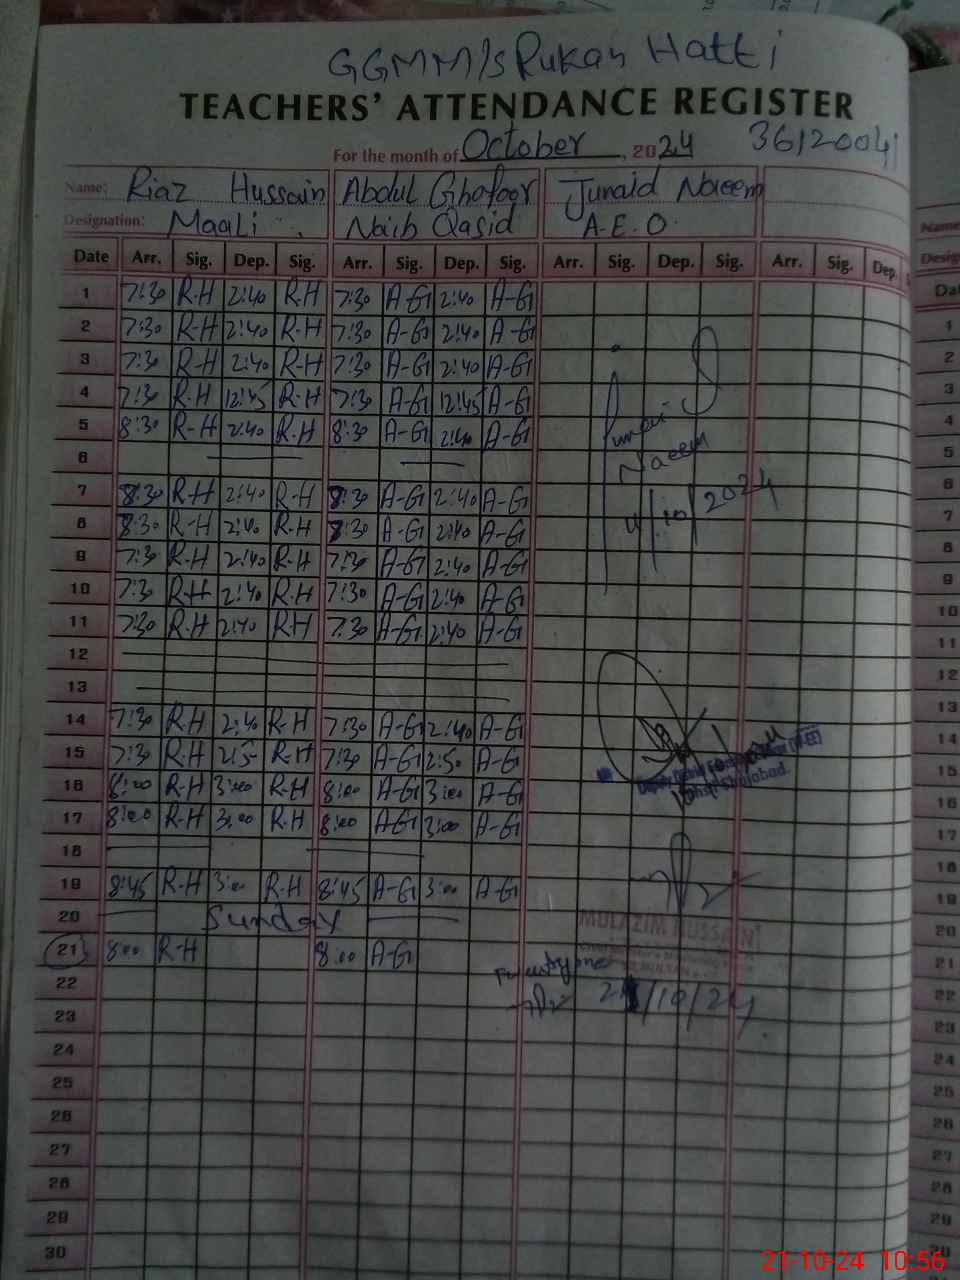 GGMM/s Rukan Hatti
TEACHERS' ATTENDANCE REGISTER
For the month of October, 2024 36120041
Name: Riaz Hussain Abdul Ghafoor Junaid Naeem
Designation: Maali Naib Qasid A.E.O.
Date Arr. Sig. Dep. Sig. Arr. Sig. Dep. Sig. Arr. Sig. Dep. Sig. Arr. Sig. Dep.
1 7:30 R-H 2:40 R-H 7:30 A-G 2:40 A-G
2 7:30 R-H 2:40 R-H 7:30 A-G 2:40 A-G
3 7:30 R-H 2:40 R-H 7:30 A-G 2:40 A-G
4 7:30 R-H 12:45 R-H 7:30 A-G 12:45 A-G
5 8:30 R-H 2:40 R-H 8:30 A-G 2:40 A-G
6
Naeem
7 8:30 R-H 2:40 R-H 8:30 A-G 2:40 A-G
4/10/2024
8 8:30 R-H 2:40 R-H 8:30 A-G 2:40 A-G
9 7:30 R-H 2:40 R-H 7:30 A-G 2:40 A-G
10 7:30 R-H 2:40 R-H 7:30 A-G 2:40 A-G
11 7:30 R-H 2:40 R-H 7:30 A-G 2:40 A-G
12
13
14 7:30 R-H 2:40 R-H 7:30 A-G 2:40 A-G
15 7:30 R-H 2:50 R-H 7:30 A-G 2:50 A-G
16 8:00 R-H 3:00 R-H 8:00 A-G 3:00 A-G
Shujabad.
17 8:00 R-H 3:00 R-H 8:00 A-G 3:00 A-G
18
19 8:45 R-H 3:00 R-H 8:45 A-G 3:00 A-G
20 Sunday
MULAZIM HUSSAIN
21 8:00 R-H 8:00 A-G
22
21/10/24
23
24
25
26
27
28
29
30
Name
Desig
Dat
1
2
3
4
5
6
7
8
9
10
11
12
13
14
15
16
17
18
19
20
21
22
23
24
25
26
27
28
29
30
21-10-24 10:56